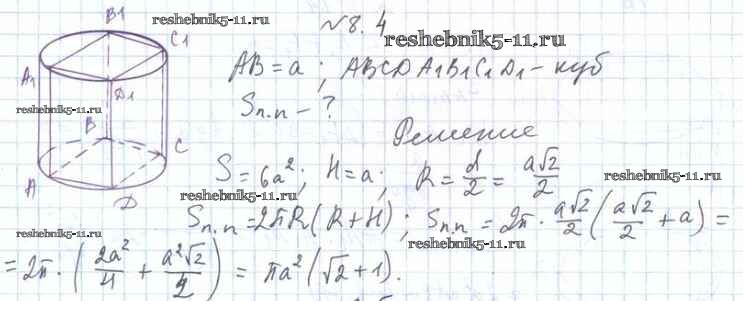 B1 reshebnik5-11.ru №8.4
C1 reshebnik5-11.ru
A1 AB = a ; ABCDA1B1C1D1 - куб
D1
reshebnik5-11.ru Sп.п - ?
B Решение
C S = 6a²; H = a; R = d/2 = a√2/2 reshebnik5-11.ru
A D reshebnik5-11.ru
Sп.п = 2πR(R+H); Sп.п = 2π · a√2/2 (a√2/2 + a) =
reshebnik5-11.ru
= 2π · (2a²/4 + a²√2/2) = πa²(√2+1).